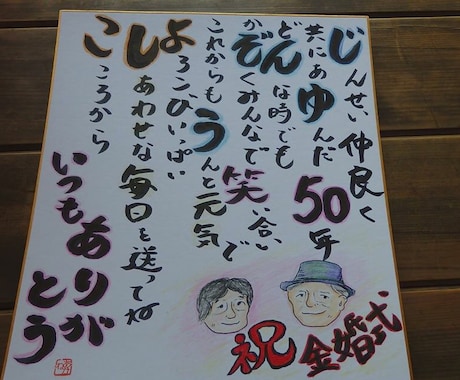 じんせい仲良く
共にあゆんだ50年
どんな時でも
かぞくみんなで笑い合い
これからもうんと元気で
よろこびいっぱい
しあわせな毎日を送ってね
こころから
いつもありが
とう
祝
金婚式